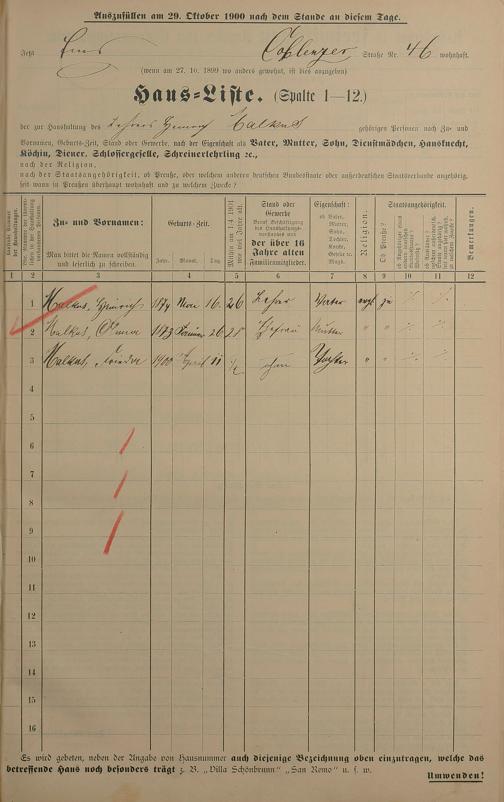 Auszufüllen am 29. Oktober 1900 nach dem Stande an diesem Tage.
Jetzt Ems Coblenzer Straße Nr. 46 wohnhaft.
(wenn am 27. 10. 1899 wo anders gewohnt, ist dies anzugeben)
Haus-Liste. (Spalte 1—12.)
der zur Haushaltung des Lehrers Heinrich Malkus gehörigen Personen nach Zu- und
Vornamen, Geburts-Zeit, Stand oder Gewerbe, nach der Eigenschaft als Vater, Mutter, Sohn, Dienstmädchen, Hausknecht,
Köchin, Diener, Schlossergeselle, Schreinerlehrling ꝛc.,
nach der Religion,
nach der Staatsangehörigkeit, ob Preuße, oder welchem anderen deutschen Bundesstaate oder außerdeutschen Staatsverbande angehörig,
seit wann in Preußen überhaupt wohnhaft und zu welchem Zwecke?
Zu- und Vornamen:
Man bittet die Namen vollständig
und leserlich zu schreiben.
Geburts-Zeit.
Jahr. Monat. Tag.
Mithin am 1/4 1901
wie viel Jahre alt.
Stand oder
Gewerbe
der über 16
Jahre alten
Familienmitglieder.
Eigenschaft:
ob Vater,
Mutter,
Sohn,
Tochter,
Koch,
Magd.
Religion.
Staatsangehörigkeit.
Ob Preuße?
Bemerkungen.
1 2 3 4 5 6 7 8 9 10 11 12
1 Malkus, Heinrich 1874 16. 26 Lehrer Vater evgl. ja
2 Malkus, Emma 1873 26. Ehefrau Mutter " "
3 Malkus, Frieda 1900 April 11 ohne Tochter " "
4
5
6
7
8
9
10
11
12
13
14
15
16
Es wird gebeten, neben der Angabe von Hausnummer auch diejenige Bezeichnung oben einzutragen, welche das
betreffende Haus noch besonders trägt z. B. „Villa Schönbrunn" „San Remo" u. s. w.
Umwenden!